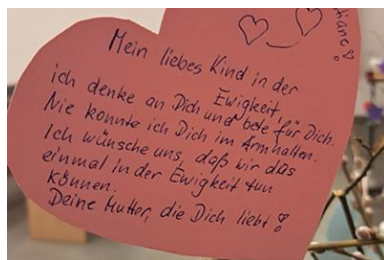 Mein liebes Kind in der
Ewigkeit,
ich denke an Dich und bete für Dich.
Nie konnte ich Dich im Arm halten.
Ich wünsche uns, daß wir das
einmal in der Ewigkeit tun
können.
Deine Mutter, die Dich liebt!